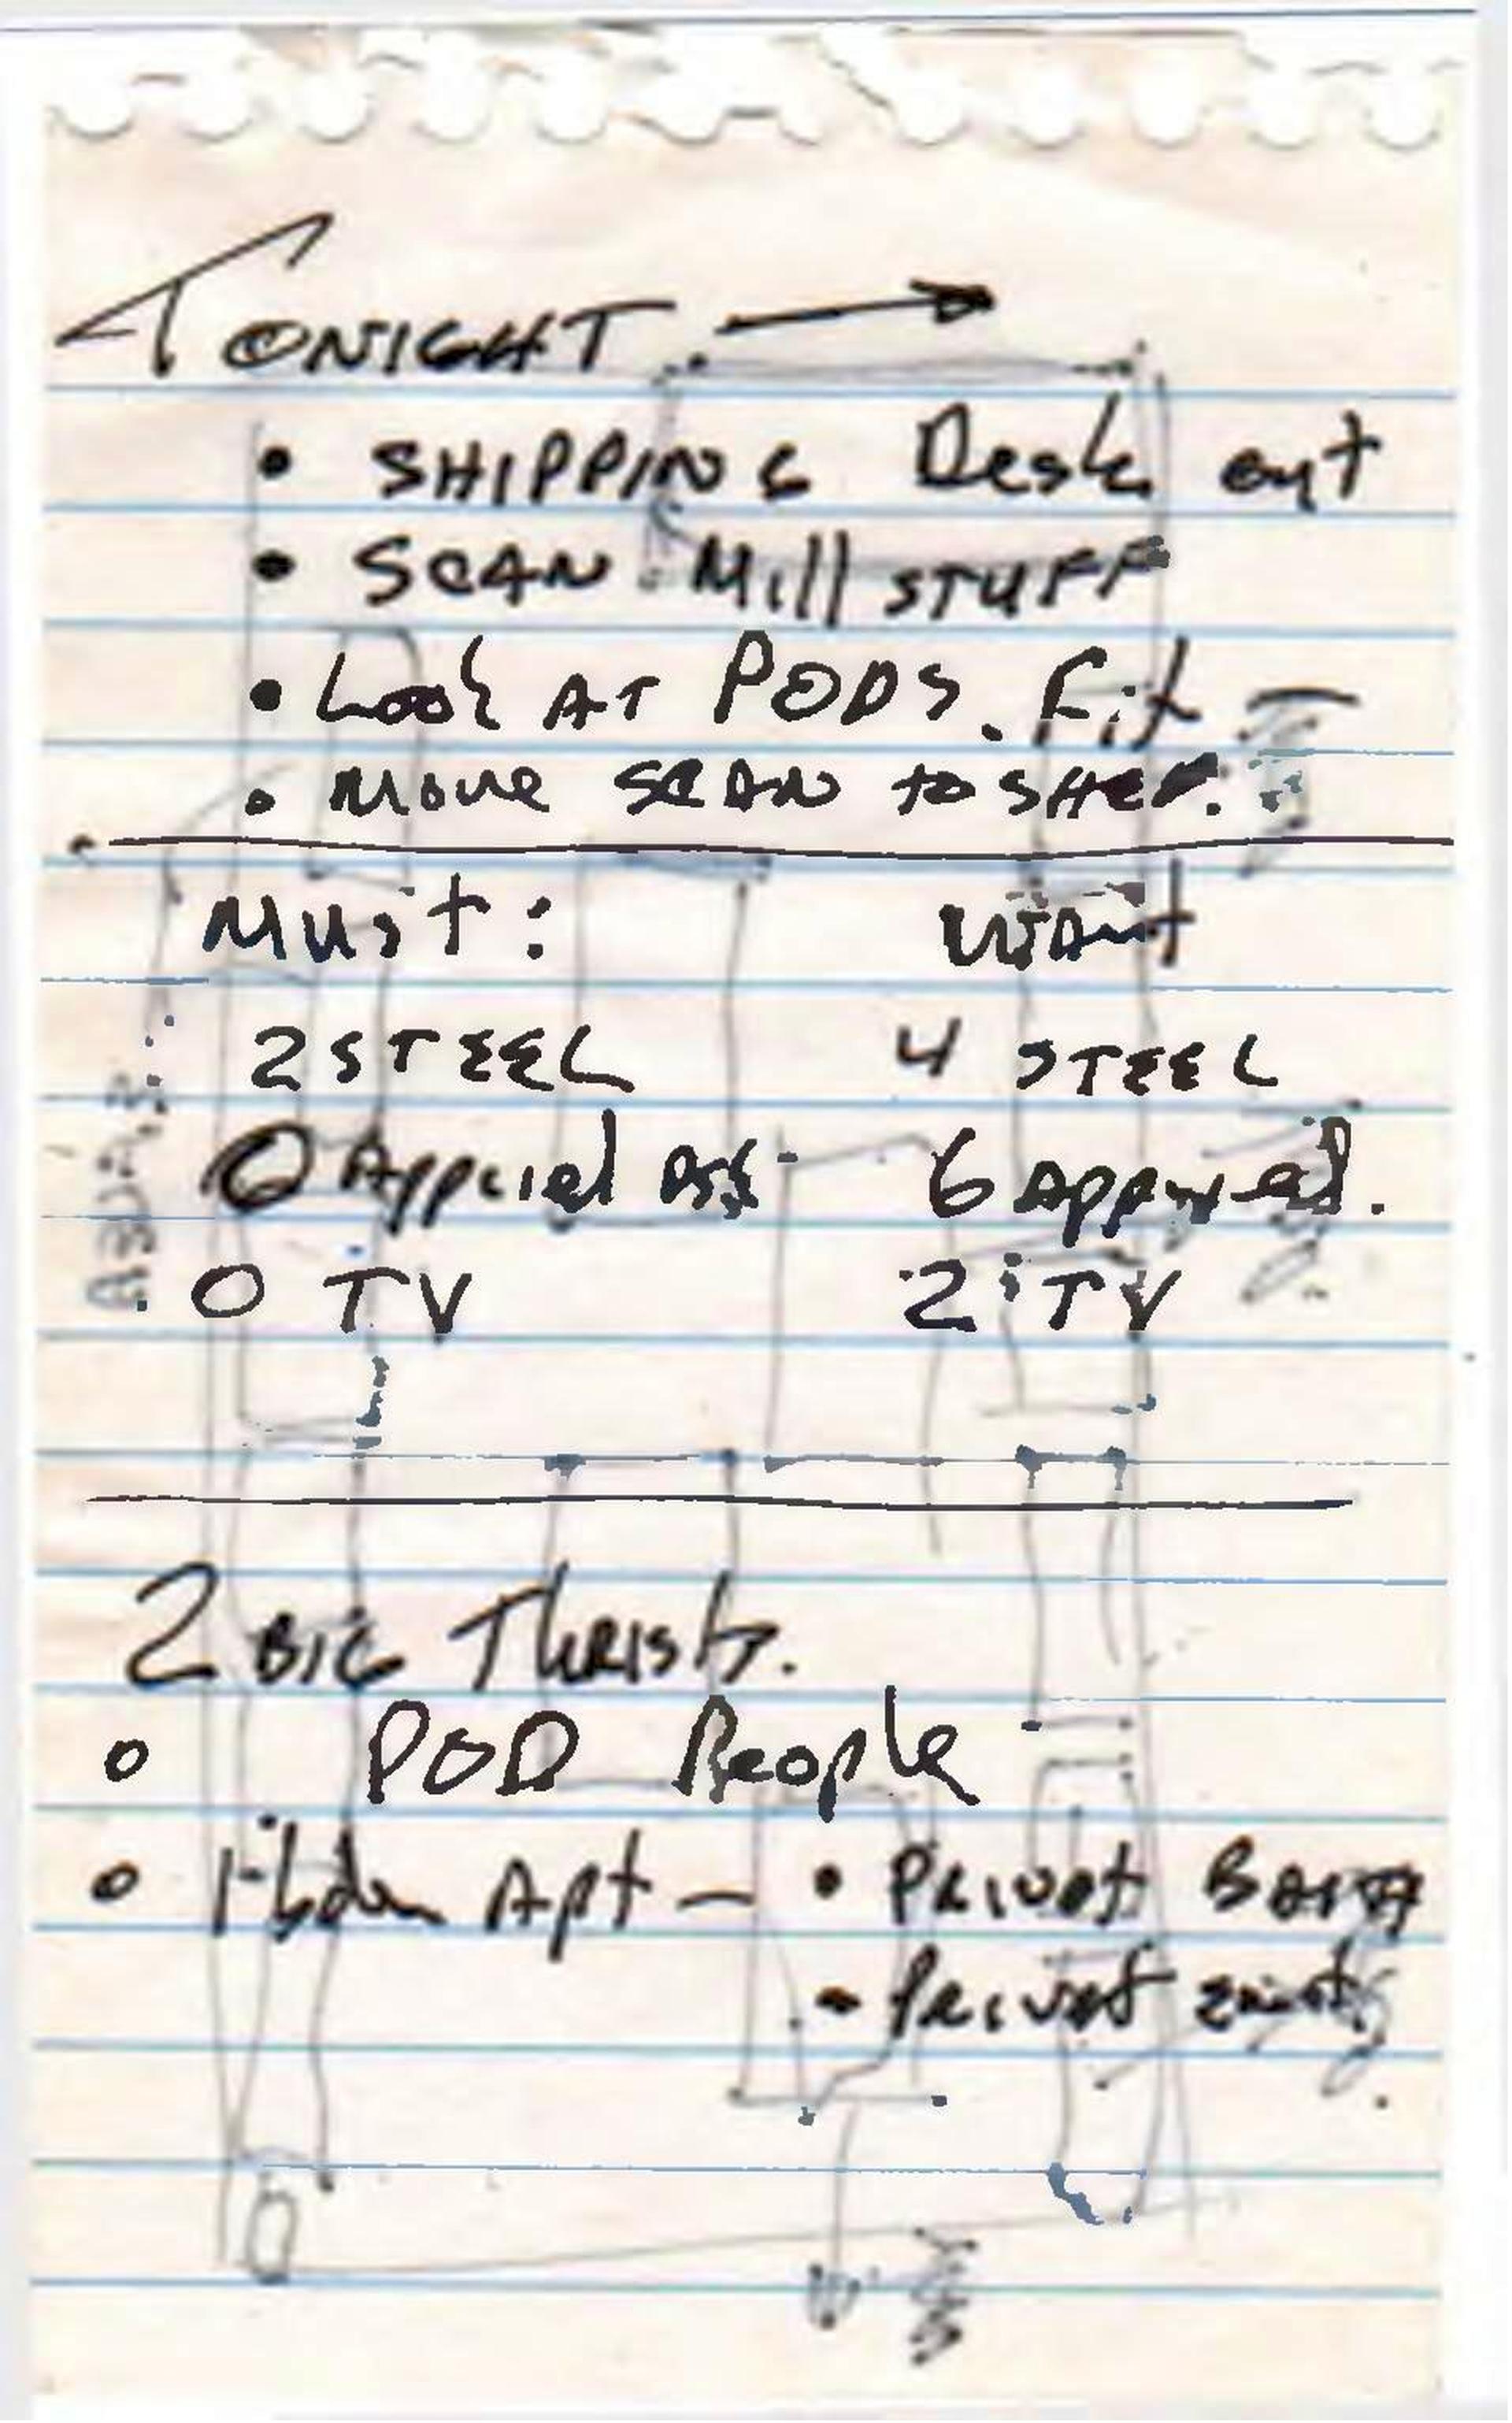 TONIGHT →
• SHIPPING Desk out
• SCAN Mill STUFF
• Look AT PODS. Fit —
• Move SCAN to SHEP.
Must: Want
2 STEEL 4 STEEL
0 6
0 TV 2 TV
2 BIG
o POD People
o Apt — • Privat BATH
- Privat